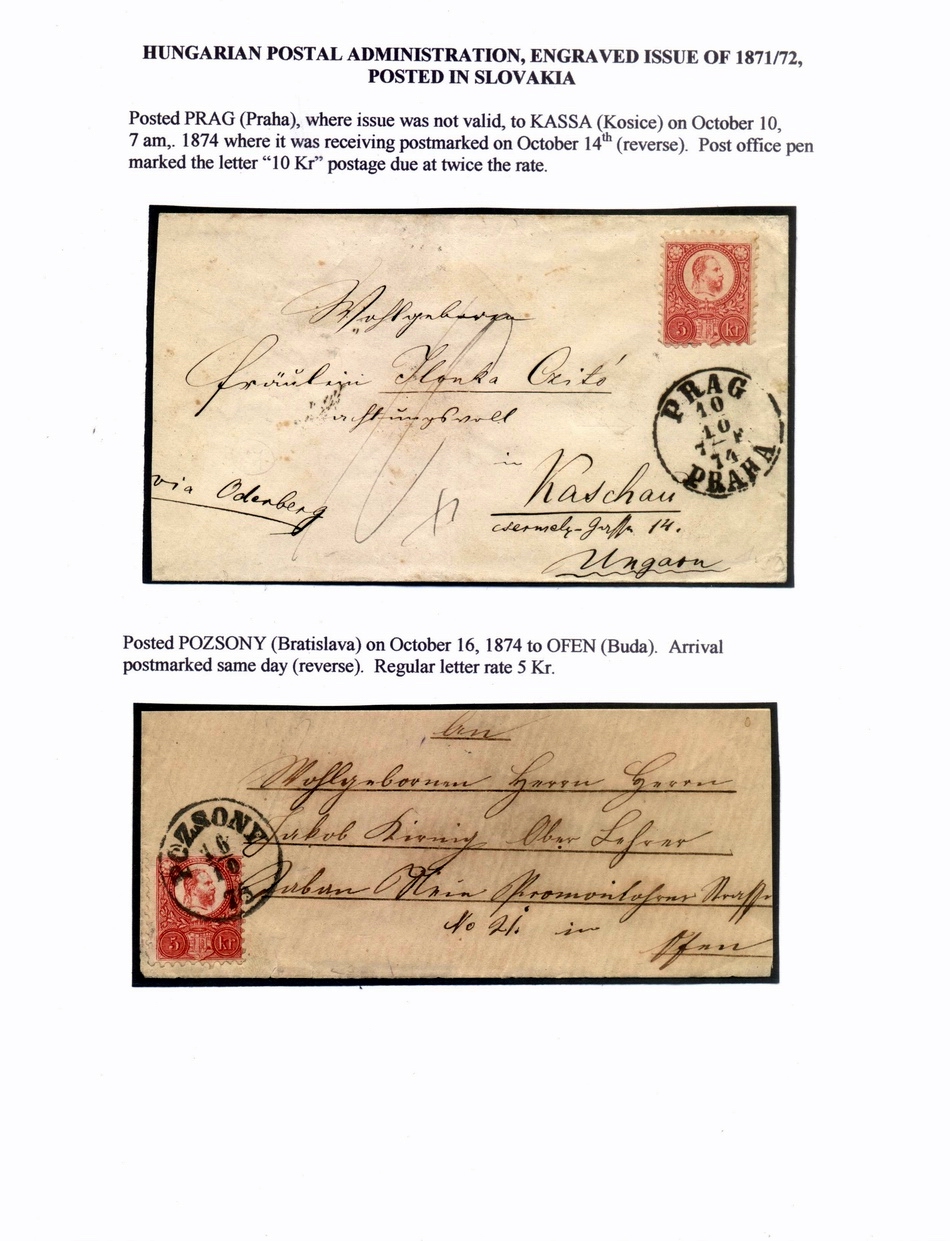 HUNGARIAN POSTAL ADMINISTRATION, ENGRAVED ISSUE OF 1871/72,
POSTED IN SLOVAKIA
Posted PRAG (Praha), where issue was not valid, to KASSA (Kosice) on October 10,
7 am,. 1874 where it was receiving postmarked on October 14th (reverse). Post office pen
marked the letter “10 Kr” postage due at twice the rate.
Wohlgeboren
Fräulein Ilonka
Achtungsvoll
in
Kaschau
via Oderberg
csermely-Gasse 14.
Ungarn
5 Kr
PRAG
10
10
7-F
74
PRAHA
Posted POZSONY (Bratislava) on October 16, 1874 to OFEN (Buda). Arrival
postmarked same day (reverse). Regular letter rate 5 Kr.
An
Wohlgebornen Herrn Herrn
Jakob Ober Lehrer
Strasse
No 21. in
Ofen
POZSONY
16
10
73
5 Kr